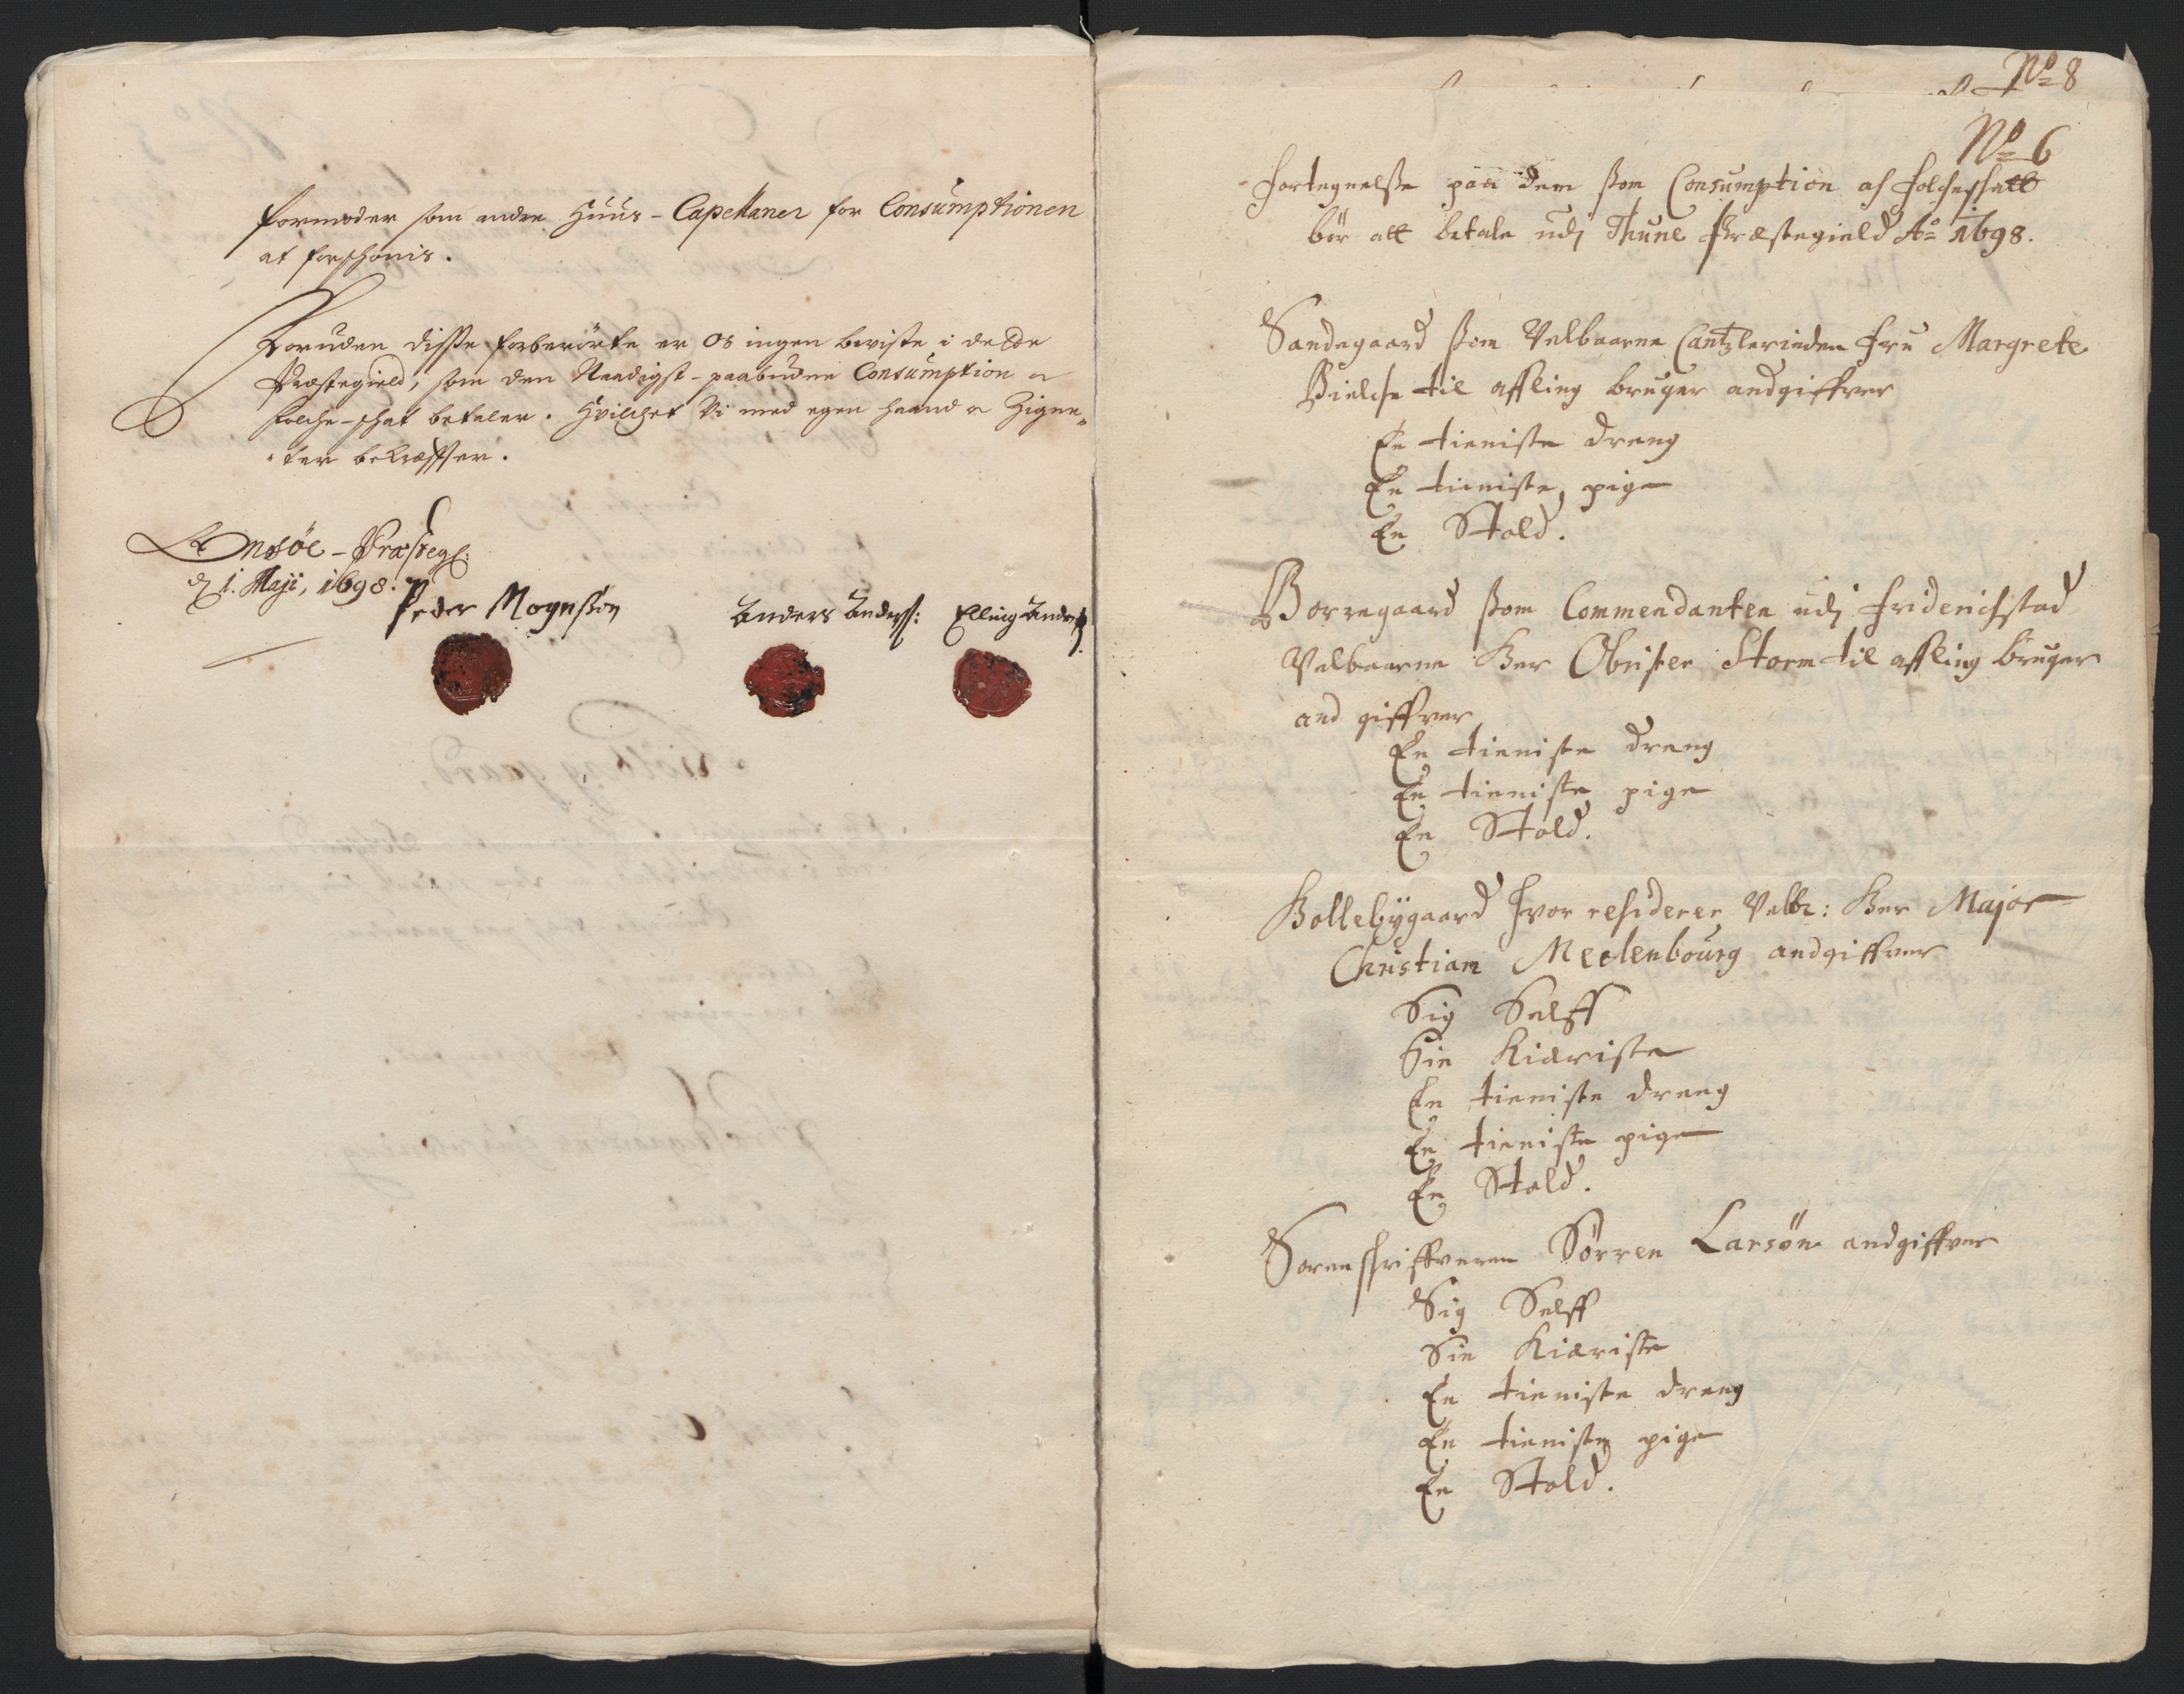 formoder som andre Huus-Capellaner for Consumptionen
at forschonis.
Foruden disse forberörte er os ingen beviste i dette
Præstegield, som den Naadigst-paabudne Consumption og
folche-schat betaler. Hvilchet Vi med egen haand og Zigne-
ter bekræffter.
Onsöe-Præstegl:
d 1. Maji, 1698.
Peder Mogenssön
Anders Anderss:
Elling Anders
No 8
No 6
Fortegnelsse paa dem ssom Consumption af folcheschatt
bör att betale udj Thune Præstegield Ao 1698.
Sandegaard ssom Velbaarne Cantzlerinden Fru Margrete
Bielche til affling bruger andgiffver
En tieniste dreng
En tieniste pige
En Stald.
Borregaard ssom Commendanten udj Friderichstad
Velbaarne Her Obrister Storm til affling bruger
and giffver
En tieniste dreng
En tieniste pige
En Stald.
Hollebÿgaard hvor residerer Velb: Her Major
Christian Meclenbourg andgiffver
Sig Selff
Sin Kiæriste
En tieniste dreng
En tieniste pige
En Stald.
Sorenschriffveren Sörren Larsön andgiffver
Sig Selff
Sin Kiæriste
En tieniste dreng
En tieniste pige
En Stald.